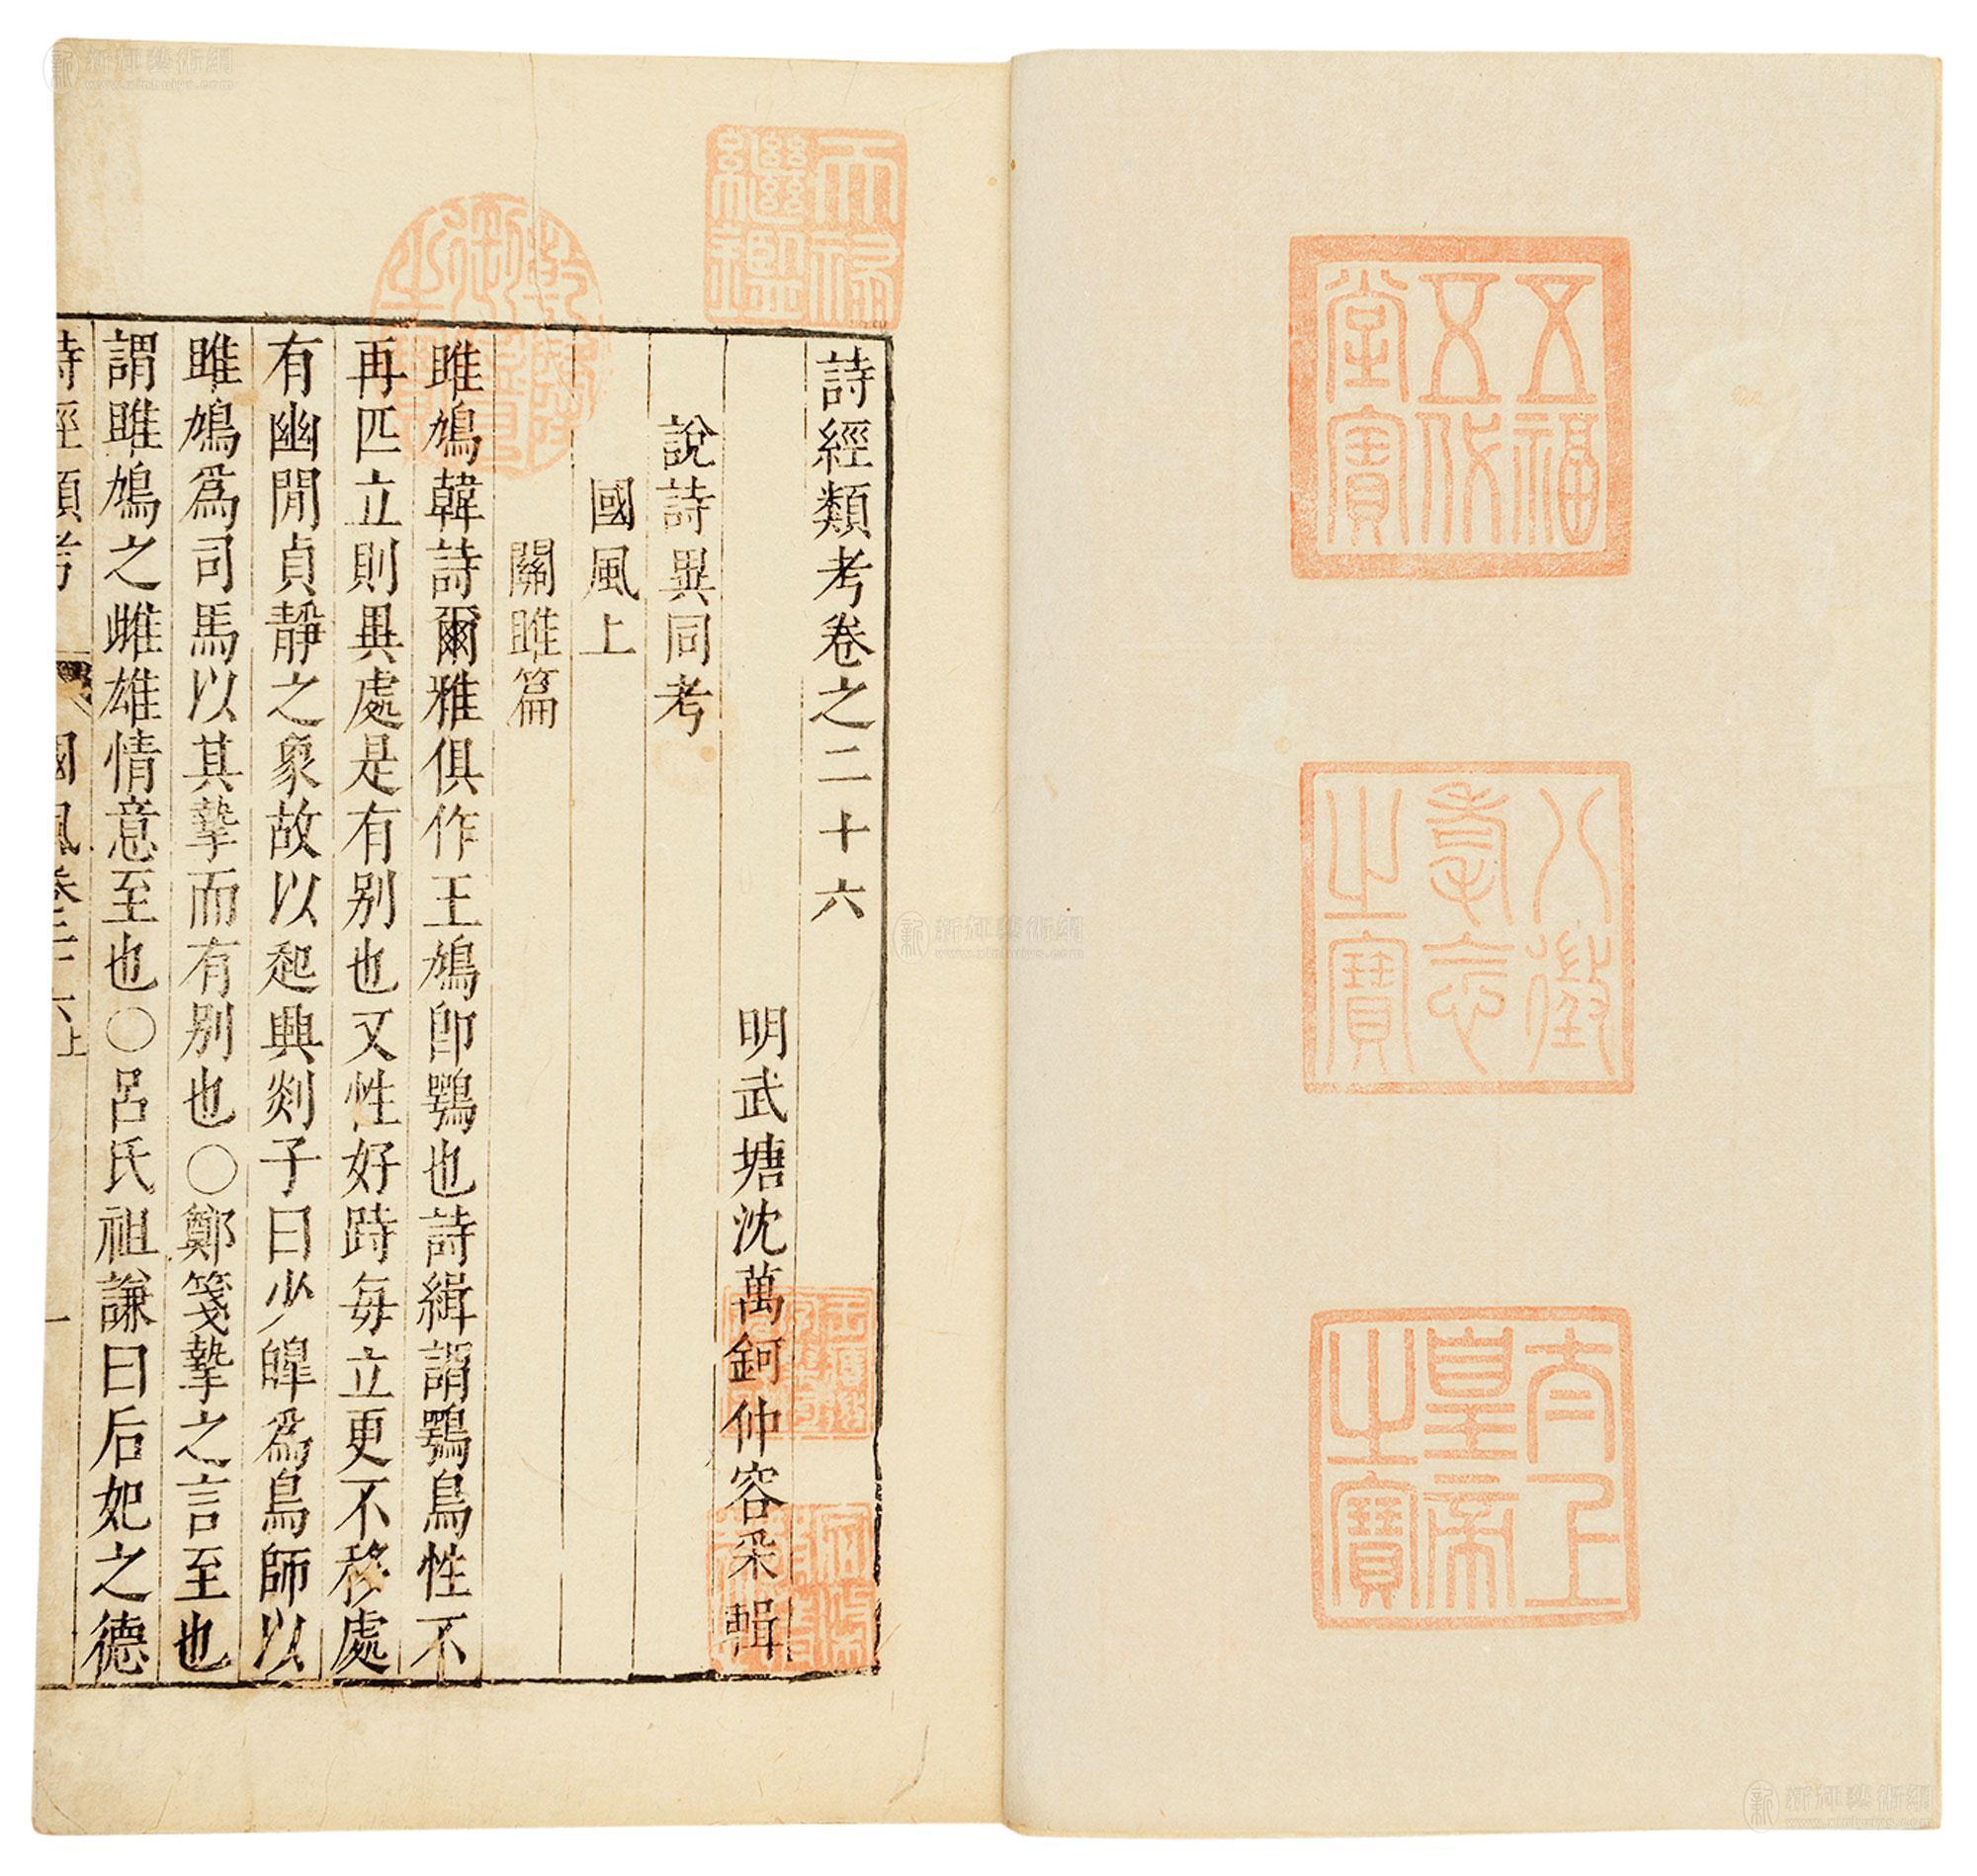 五福
五代
堂寶
八徵
耄念
之寶
太上
皇帝
之寶
天祿
繼鑑
詩經類考卷之二十六
明武塘沈萬鈳仲容采輯
說詩異同考
國風上
關雎篇
雎鳩韓詩爾雅俱作王鳩卽鶚也詩緝謂鶚鳥性不
再匹立則異處是有別也又性好跱每立更不移處
有幽閒貞靜之象故以起興剡子曰少皥爲鳥師以
雎鳩爲司馬以其摯而有別也○鄭箋摯之言至也
謂雎鳩之雌雄情意至也○呂氏祖謙曰后妃之德
詩經類考 國風卷二十六上 一
新輝藝術網
www.xinhuiys.com
新輝藝術網
www.xinhuiys.com
新輝藝術網
www.xinhuiys.com